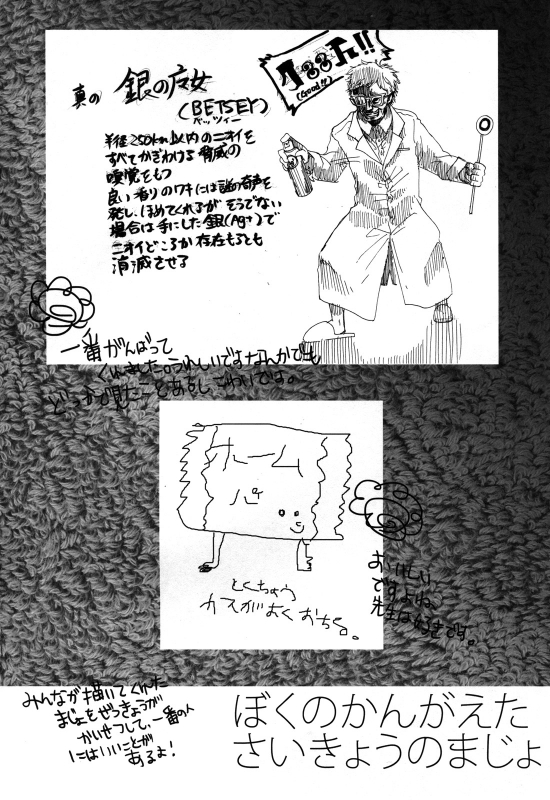 真の 銀の女
(BETSEY)
ベッツィー
グッド!!
(Good!!)
半径250km以内のニオイを
すべてかぎわける脅威の
嗅覚をもつ
良い香りのワキには謎の奇声を
発し、ほめてくれるがそうでない
場合は手にした銀(Ag+)で
ニオイどころか存在もろとも
消滅させる
一番がんばって
くれました。うれしいです。なんかでも
どっかで見たことあるし、こわいです。
ルーム
パイ
とくちょう
カスがよくおちる。
おいしい
ですよね、
先生は好きです。
みんなが描いてくれた
まじょをぜっきょうが
かいせつして、一番の人
にはいいことが
あるよ!
ぼくのかんがえた
さいきょうのまじょ